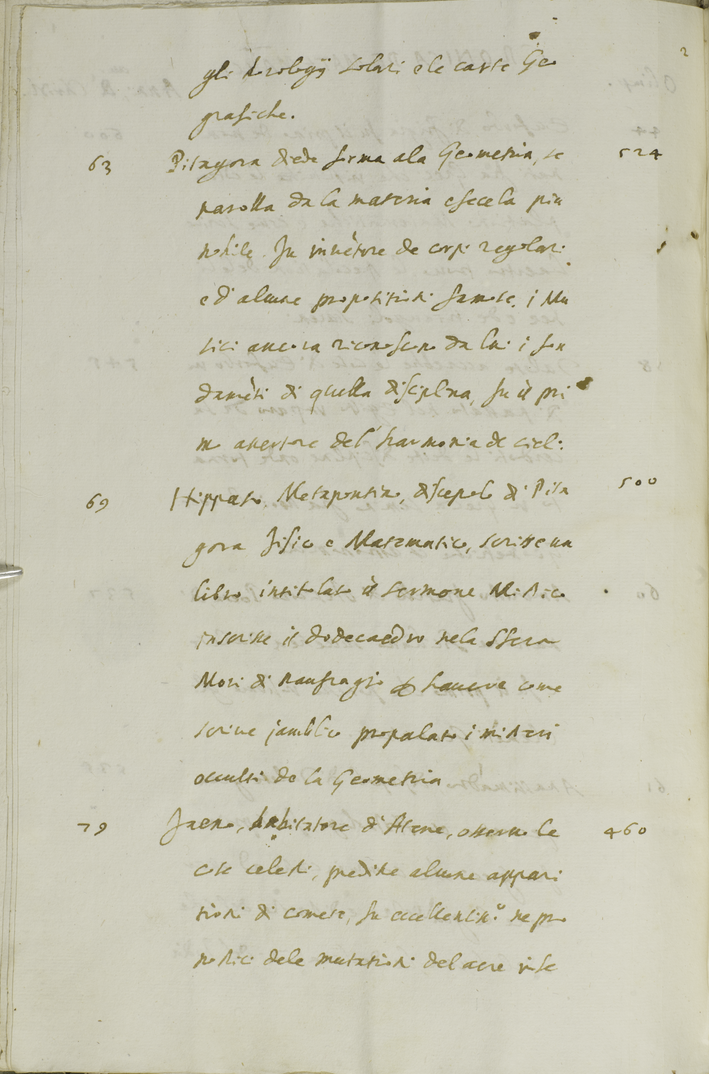 2
gli horologij solari e le carte Geo
grafiche.
63 Pitagora diede forma ala Geometria, se 524
parolla da la materia e fecela piu
nobile. Fu invētore de corpi regolari
e d'alcune propositioni famose, i Mu
sici ancora riconoscono da lui i fon
damēti di quella disciplina, fu il pri
mo assertore del'harmonia de cieli.
69 Hippaso Metapontino, discepolo di Pita 500
gora fisico e Matematico, scrisse un
libro intitolato il sermone Mistico
inscrisse il dodecaedro nela sfera
Morì di naufragio haveva come
scrive jamblico propalato i misteri
occulti de la Geometria.
79 Faeno, habitatore d'Atene, osservò le 460
cose celesti, predisse alcune appari
tioni di comete, fu eccellentiss.o ne pro
nostici dele mutationi del aere visse